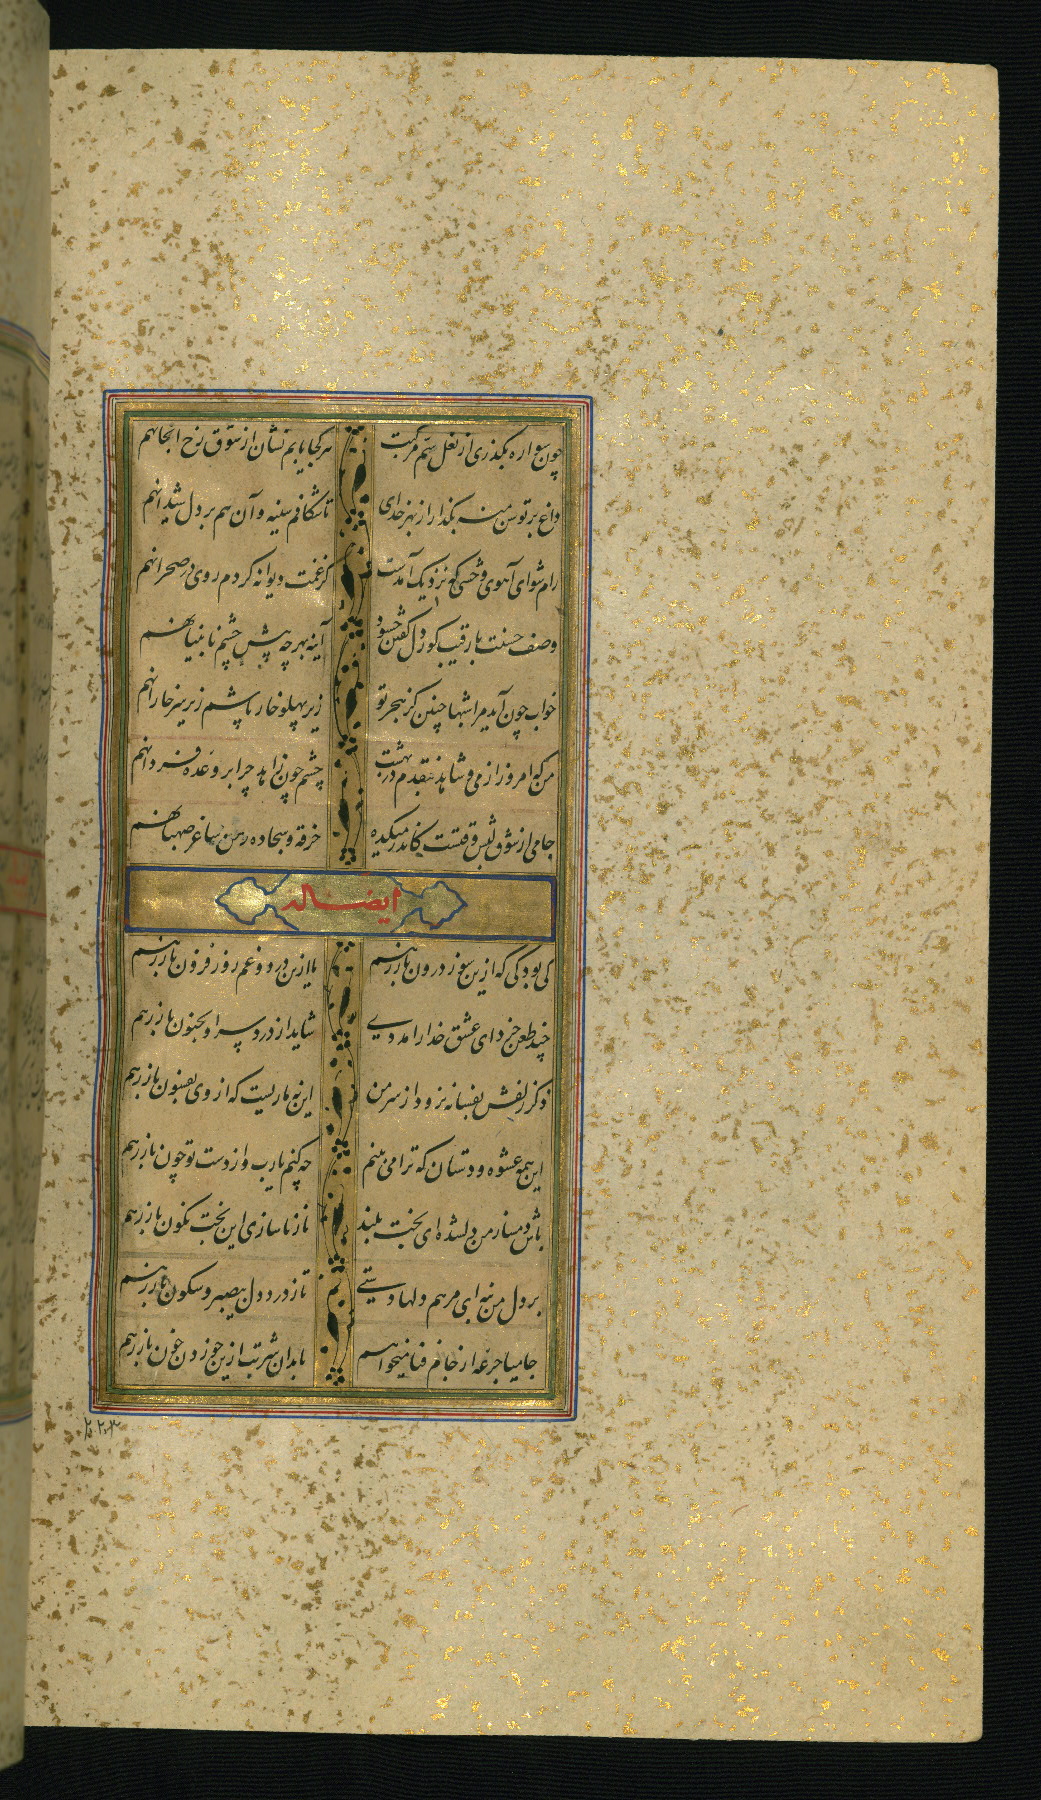 چون سواره بگذری از نعل سم مرکبت هر کجا یابم نشان از شوق رخ آنجا نهم
داغ بر توسن منه بگذار از بهر خدای تا شکافم سینه و آن هم بر دل شیدا نهم
رام شو ای آهوی وحشی که نزدیک آمدست کز غمت دیوانه کردم روی در صحرا نهم
وصف حسنت با رقیب کوردل گفتن چه سود آینه بهر چه پیش چشم نابینا نهم
خواب چون آید مرا شبها چنین کز هجر تو زیر پهلو خار باشم زیر سر خارا نهم
من که امروز از می و شاهد بنقدم در بهشت چشم چون زاهد چرا بر وعده فردا نهم
جامی از شوق لبش وقتست کاندر میکده خرقه و سجاده رهن ساغر صهبا نهم
ایضا له
کی بود کی که ازین سوز درون باز رهم یا ازین درد و غم روز فزون باز رهم
چند طعن خرد ای عشق خدا را مددی شاید از دردسر او بجنون باز رهم
ذکر زلفش بفسانه نرود از سر من این نه ماریست که از وی بفسون باز رهم
این همه عشوه و دستان که ترا می بینم چه کنم یارب و از دست تو چون باز رهم
باش دمساز من دلشده ای بخت بلند تا ز ناسازی این بخت نگون باز رهم
بر دل من نه ای مرهم دلها دستی تا ز درد دل بیصبر و سکون باز رهم
جامیا جرعه از جام فنا میخواهم تا بدان شربت ازین خوردن خون باز رهم